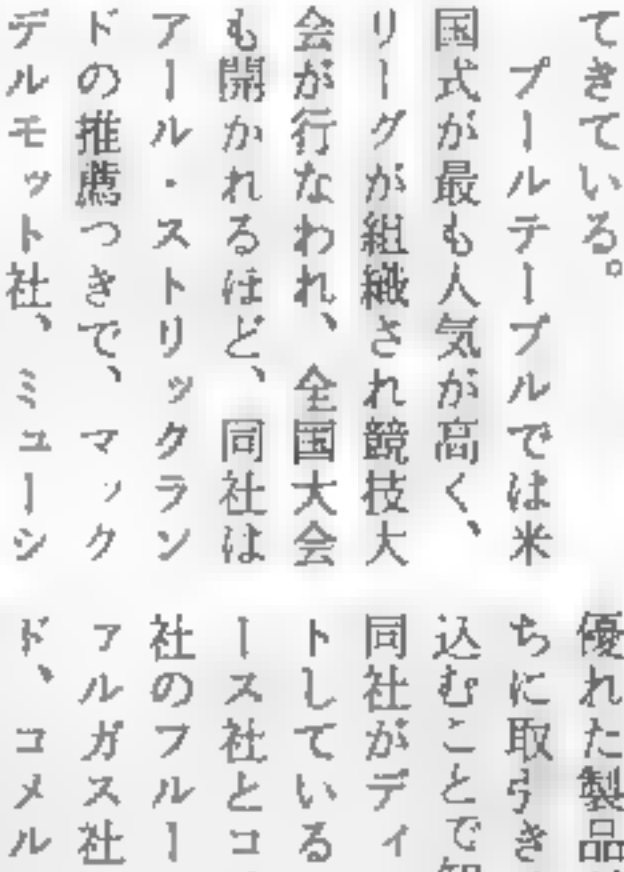 てきている。
プールテーブルでは米
国式が最も人気が高く、
リーグが組織され競技大
会が行なわれ、全国大会
も開かれるほど、同社は
アール・ストリックラン
ドの推薦つきで、マック
デルモット社、ミューシ
優れた製品
ちに取引き
込むことで知
同社がディ
トしている
ース社とコ
社のフルー
ァルガス社
ド、コメル